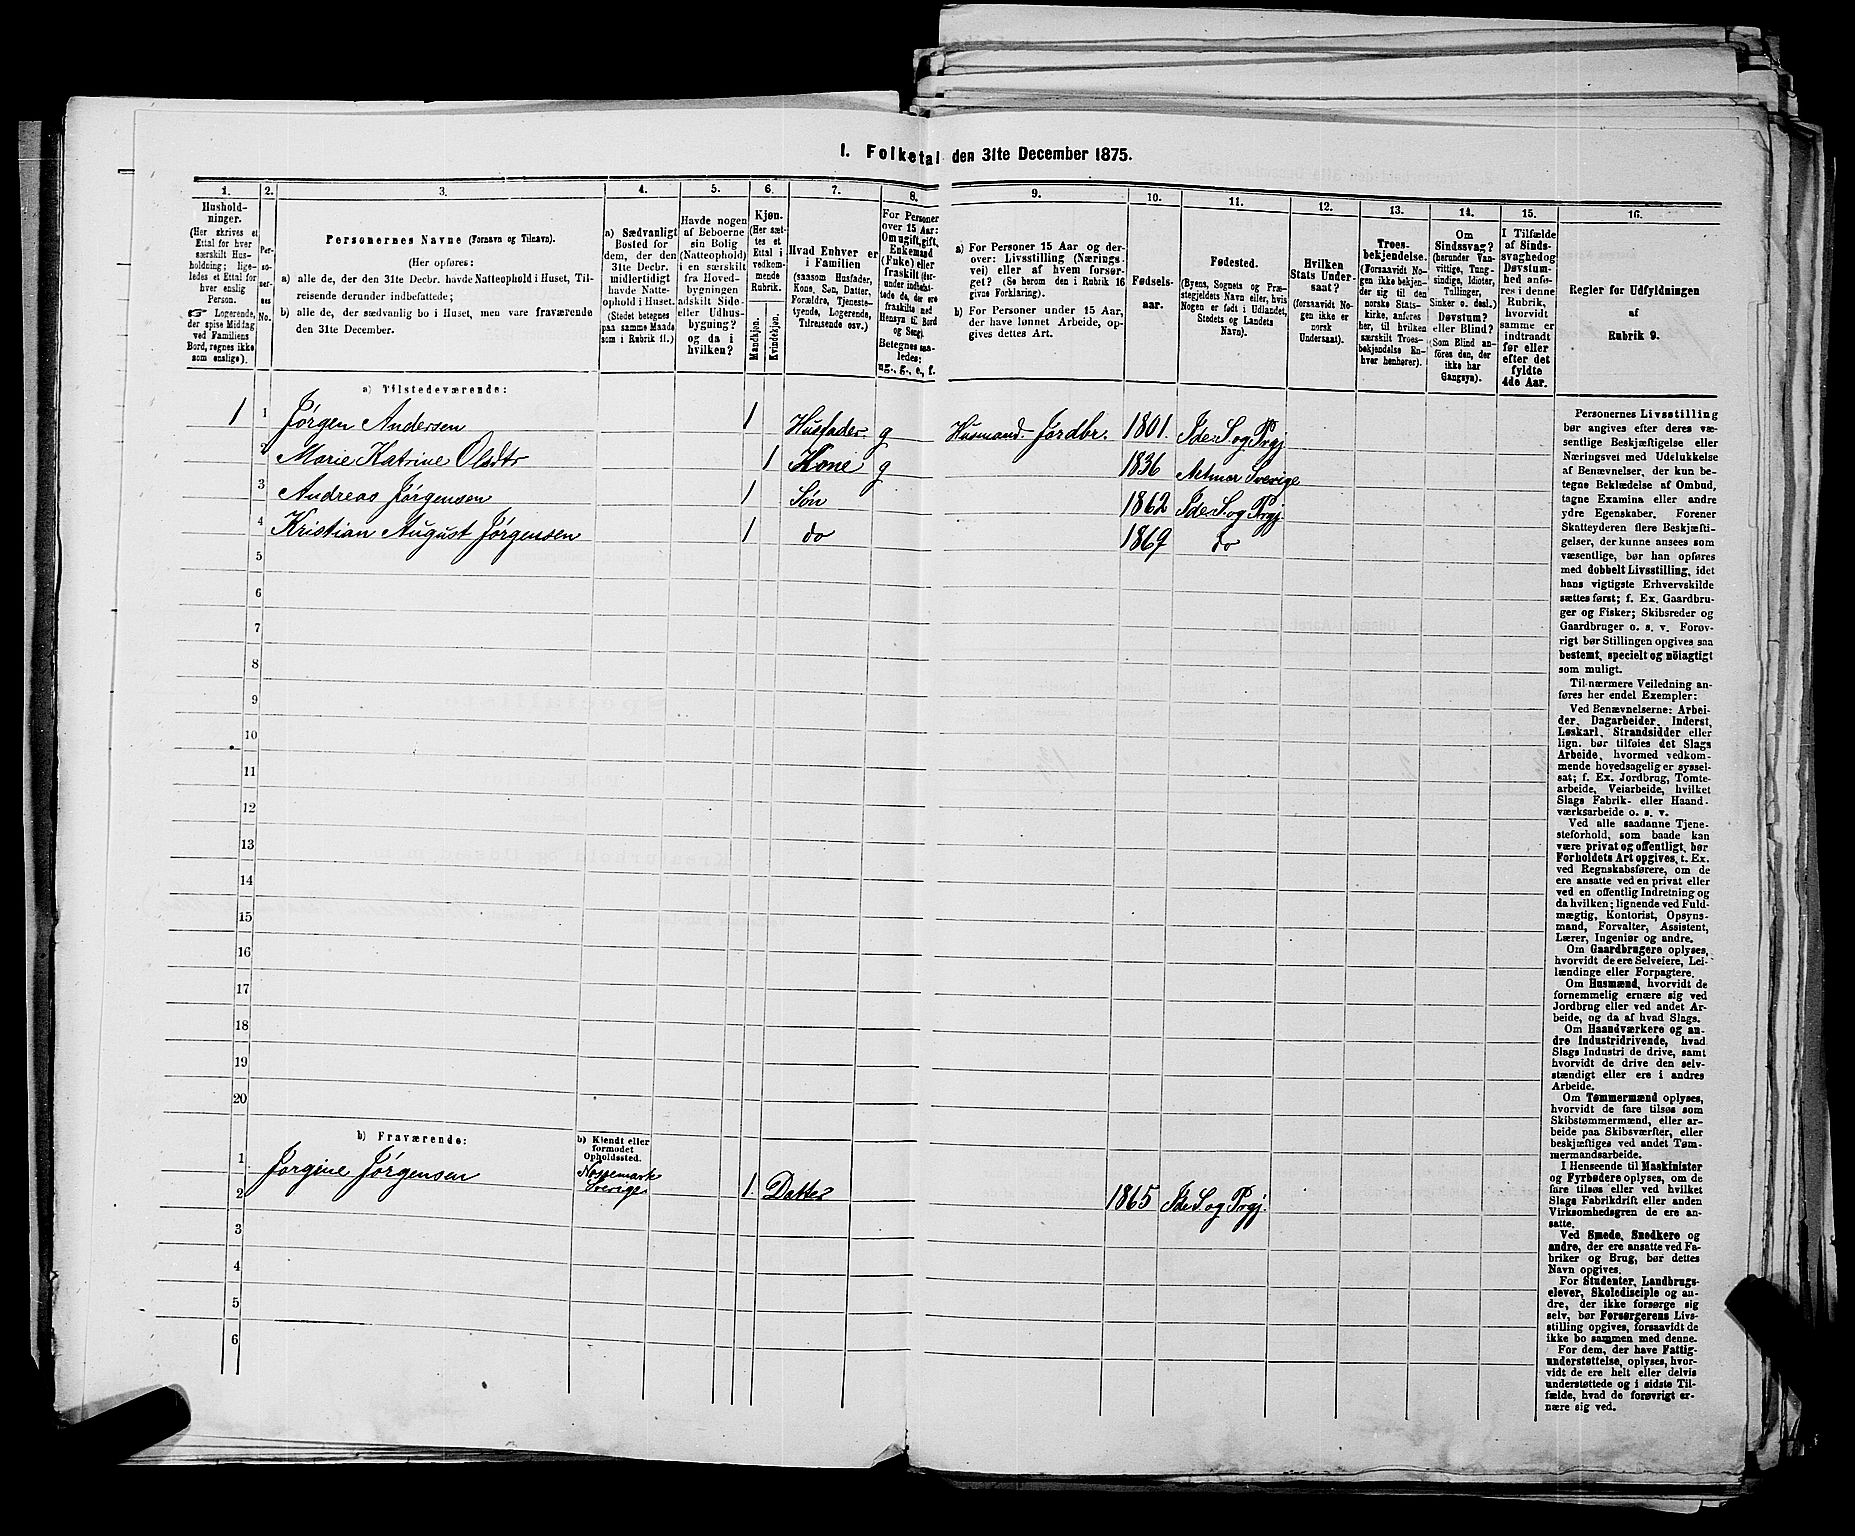 1. Folketal den 31te December 1875.
1. 2. 3. 4. 5. 6. 7. 8. 9. 10. 11. 12. 13. 14. 15. 16.
Hushold-
ninger.
(Her skrives et
Ettal for hver
særskilt Hus-
holdning; lige-
ledes et Ettal for
hver enslig
Person.
☞ Logerende,
der spise Middag
ved Familiens
Bord, regnes ikke
som enslige).
Per-
so-
ner-
nes
No.
Personernes Navne (Fornavn og Tilnavn).
(Her opføres:
a) alle de, der den 31te Decbr. havde Natteophold i Huset, Til-
reisende derunder indbefattede;
b) alle de, der sædvanlig bo i Huset, men vare fraværende
den 31te December.
a) Sædvanligt
Bosted for
dem, der den
31te Decbr.
midlertidigt
havde Natte-
ophold i Huset.
(Stedet betegnes
paa samme Maade
som i Rubrik 11.)
Havde nogen
af Beboerne
sin Bolig
(Natteophold)
i en særskilt
fra Hoved-
bygningen
adskilt Side-
eller Udhus-
bygning?
og da i
hvilken?
Kjøn.
(Her sæt-
tes et
Ettal i
vedkom-
mende
Rubrik.
Mandkjøn.
Kvindekjøn.
Hvad Enhver er
i Familien
(saasom Husfader,
Kone, Søn, Datter,
Forældre, Tjeneste-
tyende, Logerende,
Tilreisende osv.)
For Personer
over 15 Aar:
Om ugift, gift,
Enkemand
(Enke) eller
fraskilt (her-
under indbefat-
tede de, der ere
fraskilte med
Hensyn til Bord
og Seng).
Betegnes saa-
ledes:
ug., g., e., f.
a) For Personer 15 Aar og der-
over: Livsstilling (Nærings-
vei) eller af hvem forsør-
get? (Se herom den i Rubrik 16
givne Forklaring).
b) For Personer under 15 Aar,
der have lønnet Arbeide, op-
gives dettes Art.
Fødsels-
aar.
Fødested.
(Byens, Sognets og Præ-
stegjeldets Navn eller, hvis
Nogen er født i Udlandet,
Stedets og Landets
Navn).
Hvilken
Stats Under-
saat?
(forsaavidt No-
gen ikke er
norsk
Undersaat).
Troes-
bekjendelse.
(Forsaavidt No-
gen ikke bekjen-
der sig til den
norske Stats-
kirke, anføres
her, til hvilken
særskilt Troes-
bekjendelse En-
hver henhører).
Om
Sindssvag?
(herunder Van-
vittige, Tung-
sindige, Idioter,
Tullinger,
Sinker o. desl.)
Døvstum?
eller Blind?
(Som Blind an-
føres den, der
ikke har
Gangsyn).
I Tilfælde
af Sinds-
svaghed og
Døvstum-
hed anfø-
res i denne
Rubrik,
hvorvidt
samme er
indtraadt
før eller
efter det
fyldte
4de Aar.
Regler for Udfyldningen
af
Rubrik 9.
a) Tilstedeværende:
1 1 Jørgen Andersen 1 Husfader g Husmand Jordbr. 1801. Ide S. og Prgj
2 Marie Katrine Olsdtr 1 Kone g 1836 Sverige
3 Andreas Jørgensen 1 Søn 1862 Ide S. og Prgj
4 Kristian August Jørgensen 1 do 1867 do
5
6
7
8
9
10
11
12
13
14
15
16
17
18
19
20
b) Fraværende:
b) Kjendt eller
formodet
Opholdssted.
1 Jørgine Jørgensen Nossemark
Sverige 1. Datter 1865 Ide S. og Prgj.
2
3
4
5
6
Personernes Livsstilling
bør angives efter deres væ-
sentlige Beskjæftigelse eller
Næringsvei med Udelukkelse
af Benævnelser, der kun be-
tegne Beklædelse af Ombud,
tagne Examina eller andre
ydre Egenskaber. Forener
Skatteyderen flere Beskjæfti-
gelser, der kunne ansees som
væsentlige, bør han opføres
med dobbelt Livsstilling, idet
hans vigtigste Erhvervskilde
sættes først; f. Ex. Gaardbru-
ger og Fisker; Skibsreder og
Gaardbruger o. s. v. Forøv-
rigt bør Stillingen opgives saa
bestemt, specielt og nöiagtigt
som muligt.
Til nærmere Veiledning an-
føres her endel Exempler:
Ved Benævnelserne: Arbei-
der, Dagarbeider, Inderst,
Løskarl, Strandsidder eller
lign. bør tilføies det Slags
Arbeide, hvormed vedkom-
mende hovedsagelig er syssel-
sat; f. Ex. Jordbrug, Tomte-
arbeide, Veiarbeide, hvilket
Slags Fabrik- eller Haand-
værksarbeide o. s. v.
Ved alle saadanne Tjene-
steforhold, som baade kan
være privat og offentligt, bør
Forholdets Art opgives, t. Ex.
ved Regnskabsførere, om de
ere ansatte ved en privat eller
ved en offentlig Indretning og
da hvilken; lignende ved Fuld-
mægtig, Kontorist, Opsyns-
mand, Forvalter, Assistent,
Lærer, Ingeniør og andre.
Om Gaardbrugere oplyses,
hvorvidt de ere Selveiere, Lei-
lændinge eller Forpagtere.
Om Husmænd, hvorvidt de
fornemmelig ernære sig ved
Jordbrug eller ved andet Ar-
beide, og da af hvad Slags.
Om Haandværkere og an-
dre Industridrivende, hvad
Slags Industri de drive, samt
hvorvidt de drive den selv-
stændigt eller ere i andres
Arbeide.
Om Tømmermænd oplyses,
hvorvidt de fare tilsøs som
Skibstømmermænd, eller ar-
beide paa Skibsværfter, eller
beskjæftiges ved andet Tøm-
mermandsarbeide.
I Henseende til Maskinister
og Fyrbødere oplyses, om de
fare tilsøs eller ved hvilket
Slags Fabrikdrift eller anden
Virksomhedsgren de ere an-
satte.
Ved Smede, Snedkere og
andre, der ere ansatte ved Fa-
briker og Brug, bør dettes
Navn opgives.
For Studenter, Landbrugs-
elever, Skoledisciple og an-
dre, der ikke forsørge sig
selv, bør Forsørgerens Livs-
stilling opgives, forsaavidt de
ikke bo sammen med denne.
For dem, der have Fattig-
understøttelse, oplyses, hvor-
vidt de ere helt eller delvis
understøttede og i sidste Til-
fælde, hvad de forøvrigt er-
nære sig ved.